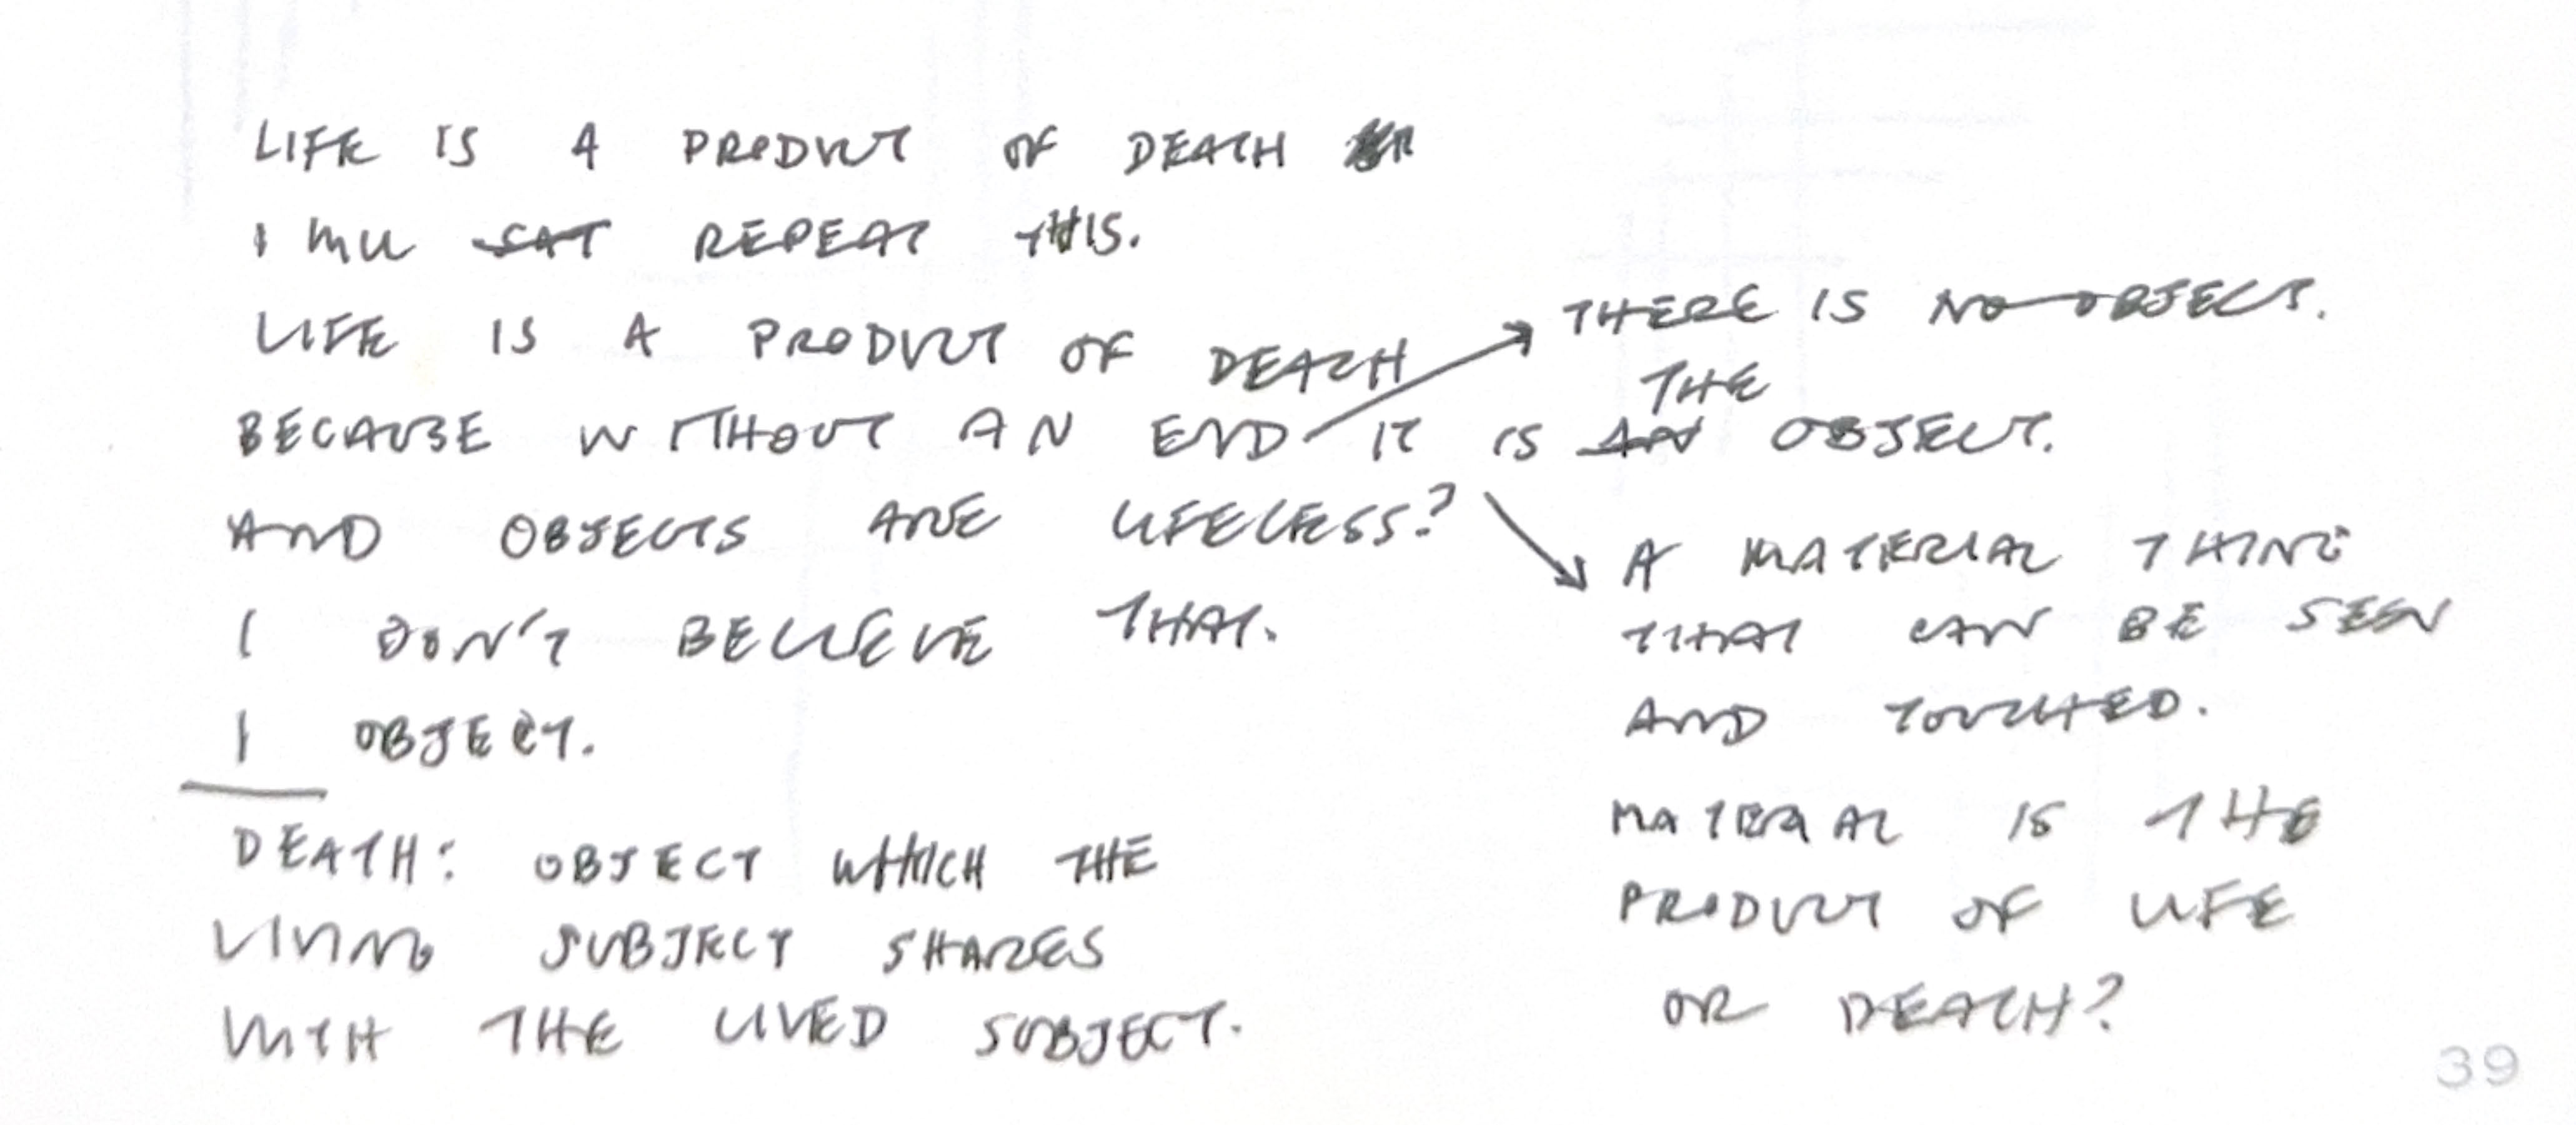 LIFE IS A PRODUCT OF DEATH
I WILL SAY REPEAT THIS.
LIFE IS A PRODUCT OF DEATH
BECAUSE WITHOUT AN END IT IS AN THE OBJECT.
AND OBJECTS ARE LIFELESS?
I DON'T BELIEVE THAT.
I OBJECT.
DEATH: OBJECT WHICH THE
LIVING SUBJECT SHARES
WITH THE LIVED SUBJECT.
THERE IS NO OBJECT.
A MATERIAL THING
THAT CAN BE SEEN
AND TOUCHED.
MATERIAL IS THE
PRODUCT OF LIFE
OR DEATH?
39